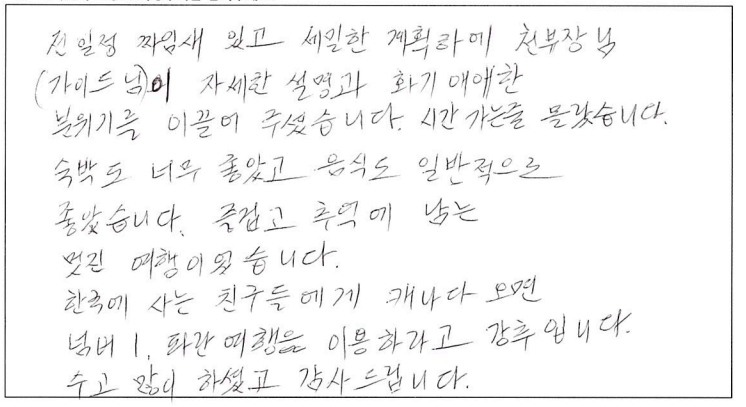 전일정 짜임새 있고 세밀한 계획하에 천부장님
(가이드님)이 자세한 설명과 화기애애한
분위기를 이끌어 주셨습니다. 시간 가는줄 몰랐습니다.
숙박도 너무 좋았고 음식도 일반적으로
좋았습니다. 즐겁고 추억에 남는
멋진 여행이었습니다.
한국에 사는 친구들에게 캐나다 오면
넘버 1. 파란여행을 이용하라고 강추입니다.
수고 많이 하셨고 감사드립니다.